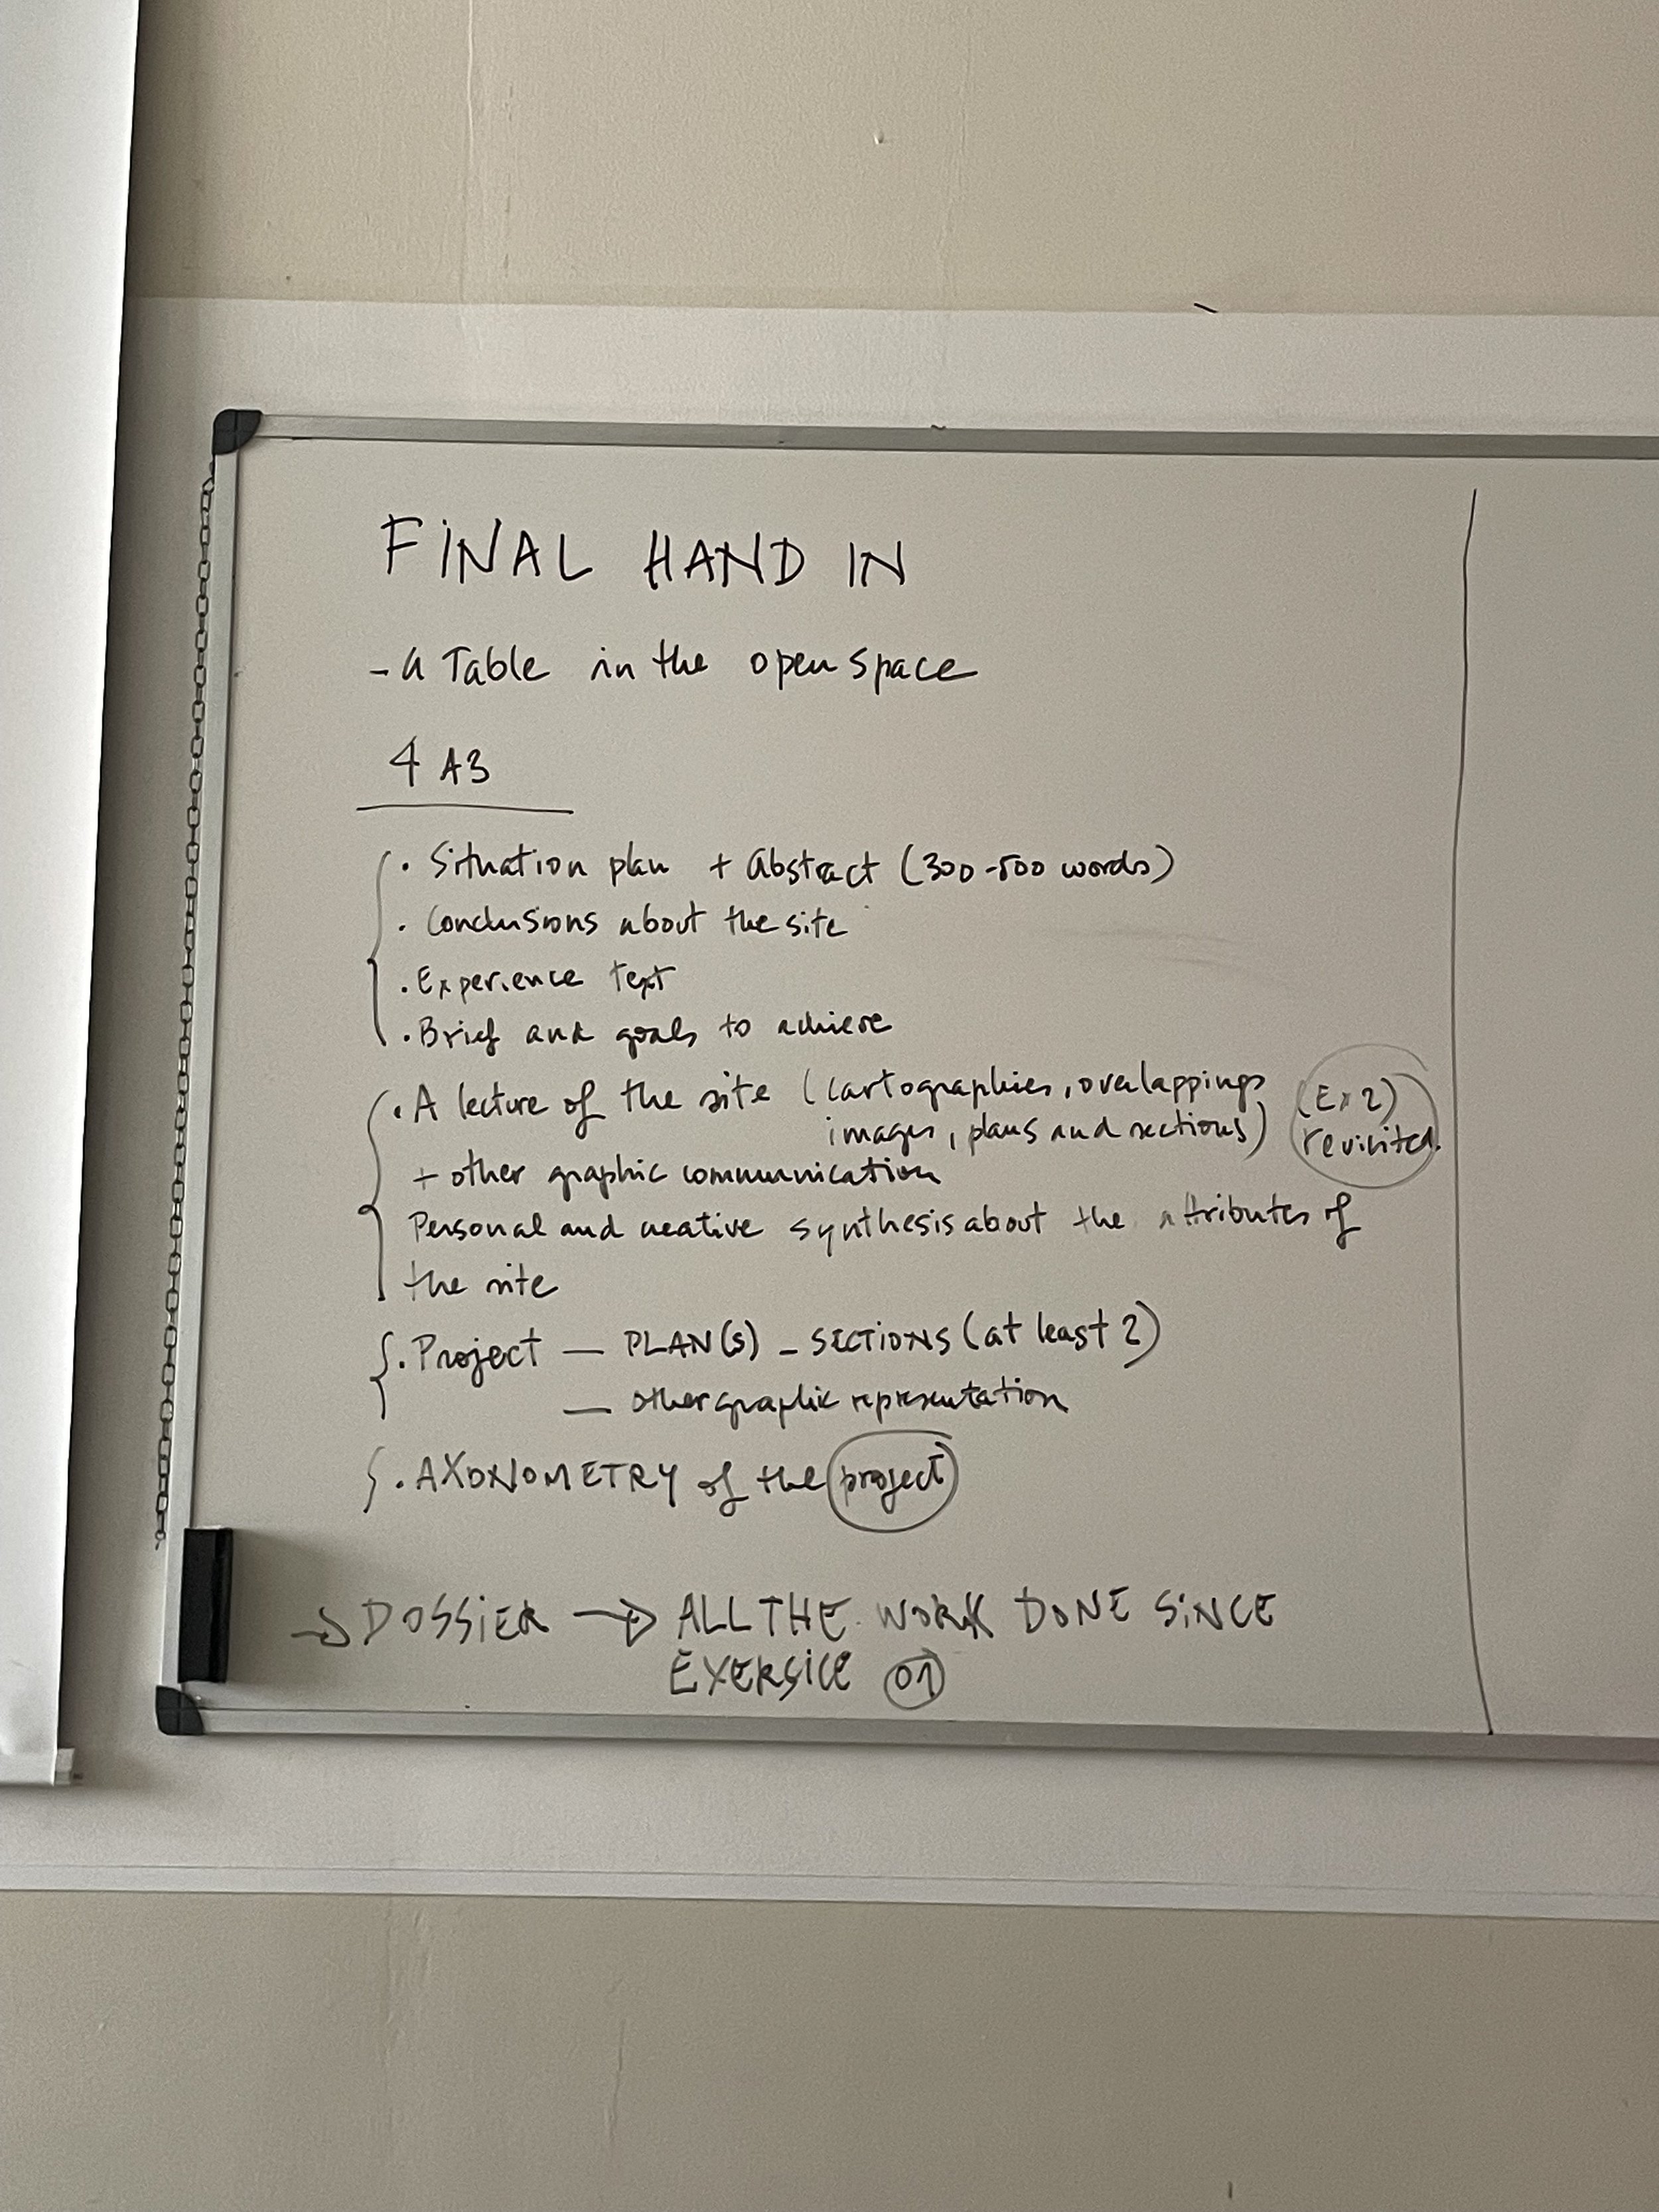 FINAL HAND IN
- a Table in the open space
4 A3
. Situation plan + Abstract (300-500 words)
. Conclusions about the site
. Experience text
. Brief and goals to achieve
. A lecture of the site (cartographies, overlappings
images, plans and sections) (Ex 2)
revisited.
+ other graphic communication
Personal and creative synthesis about the attributes of
the site
. Project — PLAN(S) - SECTIONS (at least 2)
— other graphic representation
. AXONOMETRY of the project
→ DOSSIER → ALL THE WORK DONE SINCE
EXERSICE 01